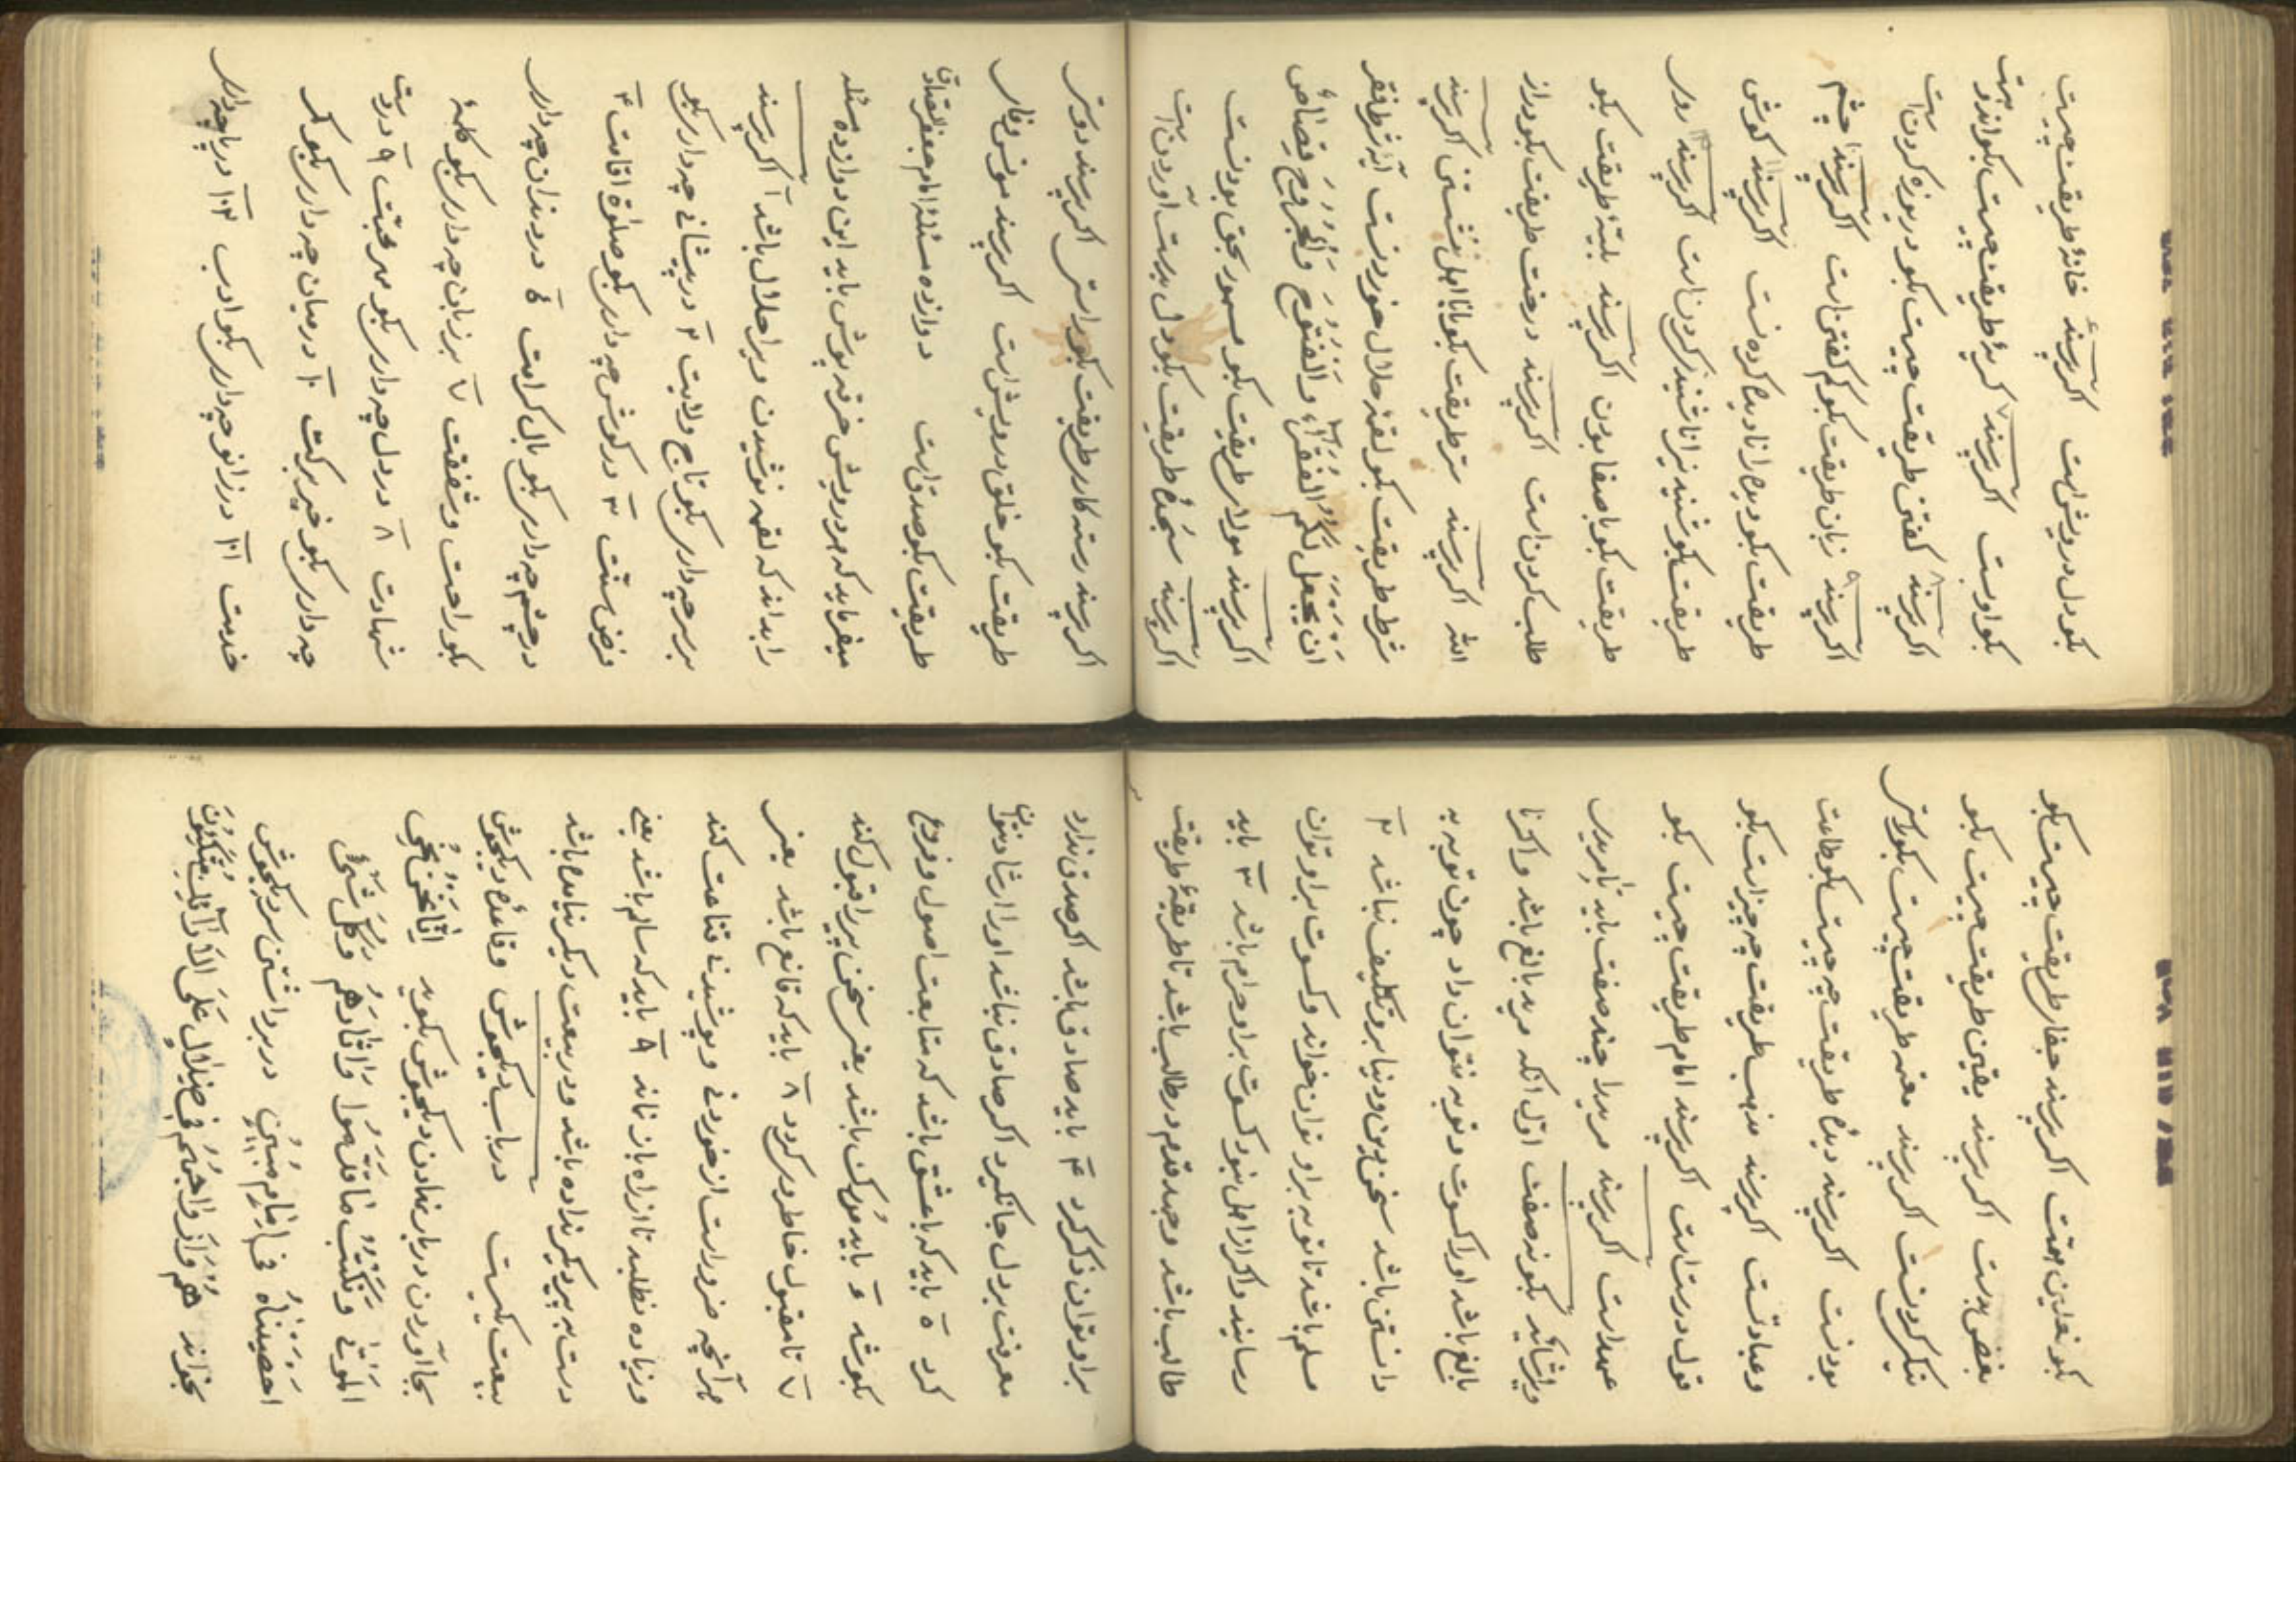 بکو دل درویش است اکر پرسند خانهٔ طریقت چیست
بکو اوست اکر پرسند کریهٔ طریقت چیست بکو اندوهست
اکر پرسند کفتن طریقت چیست بکو دریوزه کردن است
اکر پرسند زبان طریقت بکو کم کفتن است اکر پرسند چشم
طریقت بکو دیده را نادیده کردنست اکر پرسند کوش
طریقت بکو شنیده را ناشنیده کردن است اکر پرسند روی
طریقت بکو با صفا بودن اکر پرسند طریقت بکو
طلب کردن است اکر پرسند درخت طریقت بکو دراز
الله اکر پرسند ستر طریقت بکو با نااهل نشستن اکر پرسند
شرط طریقت بکو لقمهٔ حلال خوردنست آیهٔ شرط فقر
ان یجعل لکم الفقراء والفتوح والجروح قصاص
اکر پرسند مولای طریقت بکو بحق بودنست
اکر پرسند سجدهٔ طریقت بکو دل بدست آوردن است
اکر پرسند رسته کار طریقت بکو راستی اکر پرسند دوستی
طریقت بکو خلق درویش است اکر پرسند مونس وفای
طریقت بکو صدق است دوازده مسئلهٔ امام جعفر الصادق
میفرماید که هر درویش خرقه پوش باید این دوازده مسئله
را بداند که لقمه نوشیدن ویرا حلال باشد ١ اکر پرسند
بر سر چه داری بکو تاج ولایت ٢ در پیشانی چه داری بکو
فرض سنّت ٣ در کوش چه داری بکو صلوة اقامت ۴
در چشم چه داری بکو بال کرامت ۶ در دندان چه داری
بکو راحت وشفقت ٧ بر زبان چه داری بکو کلمهٔ
شهادت ٨ در دل چه داری بکو مهر محبّت ٩ در دست
چه داری بکو خیر برکت ١٠ در میان چه داری بکو کمر
خدمت ١١ در زانو چه داری بکو ادب ١٢ در پا چه داری
بکو نعلین همّت اکر پرسند جفای طریقت چیست بکو
بغض بدست اکر پرسند یقین طریقت چیست بکو
نیکی کردنست اکر پرسند مغز طریقت چیست بکو راستی
بودنست اکر پرسند دیدهٔ طریقت چه چیست بکو طاعت
وعبادتست اکر پرسند مذهب طریقت چه چیز است بکو
قول درست است اکر پرسند امام طریقت چیست بکو
عهد است اکر پرسند مرید را چند صفت باید تا مریدی
ویرا شاید بکو نه صفت اوّل انکه مرید بالغ باشد واکر نا
بالغ باشد او را کسوت وتوبه نتوان داد چون توبه به
دانستن باشد سخن دین ودنیا برو تکلیف نباشد ٢
مسلم باشد تا توبه بر او توان خواند وکسوت بر او توان
رسانید واکر از اهل نبود کسوت بر او حرام باشد ٣ باید
طالب باشد وجهد قدم در طالب باشد تا طریقهٔ طریقت
بر او توان ذکر کرد ۴ باید صادق باشد اکر صدق ندارد
معرفت بر دل جا نکیرد اکر صادق نباشد او را ارشاد نتوان
کرد ٥ باید که با عشق باشد که متابعت اصول وفروع
بکوشد ۶ باید مدرک باشد یعنی سخن پیر را قبول کند
٧ تا مقبول خاطر وی کردد ٨ باید که قانع باشد یعنی
بهر آنچه ضرور است از خوردنی وپوشیدنی قناعت کند
وزیاده نطلبد تا از راه باز نماند ٩ باید که سالم باشد یعنی
دست به پیر دیکر نداده باشد ودر بیعت دیکر نیامده باشد
بیعت یکیست در باب دیکجوش وقاعدهٔ دیکجوش
بجا آوردن در بار نهادن دیکجوش بکوید اِنّا نَحنُ نُحیِ
المَوتیٰ ونَکتُبُ ما قَدَّموا وآثارَهُم وکُلَّ شَیءٍ
احصَیناهُ فی اِمامٍ مُبین در بر داشتن سر دیکجوش
بخواند هُم وَاَزواجُهُم فی ظِلالٍ عَلَی الاَرائِکِ مُتَّکِئونَ